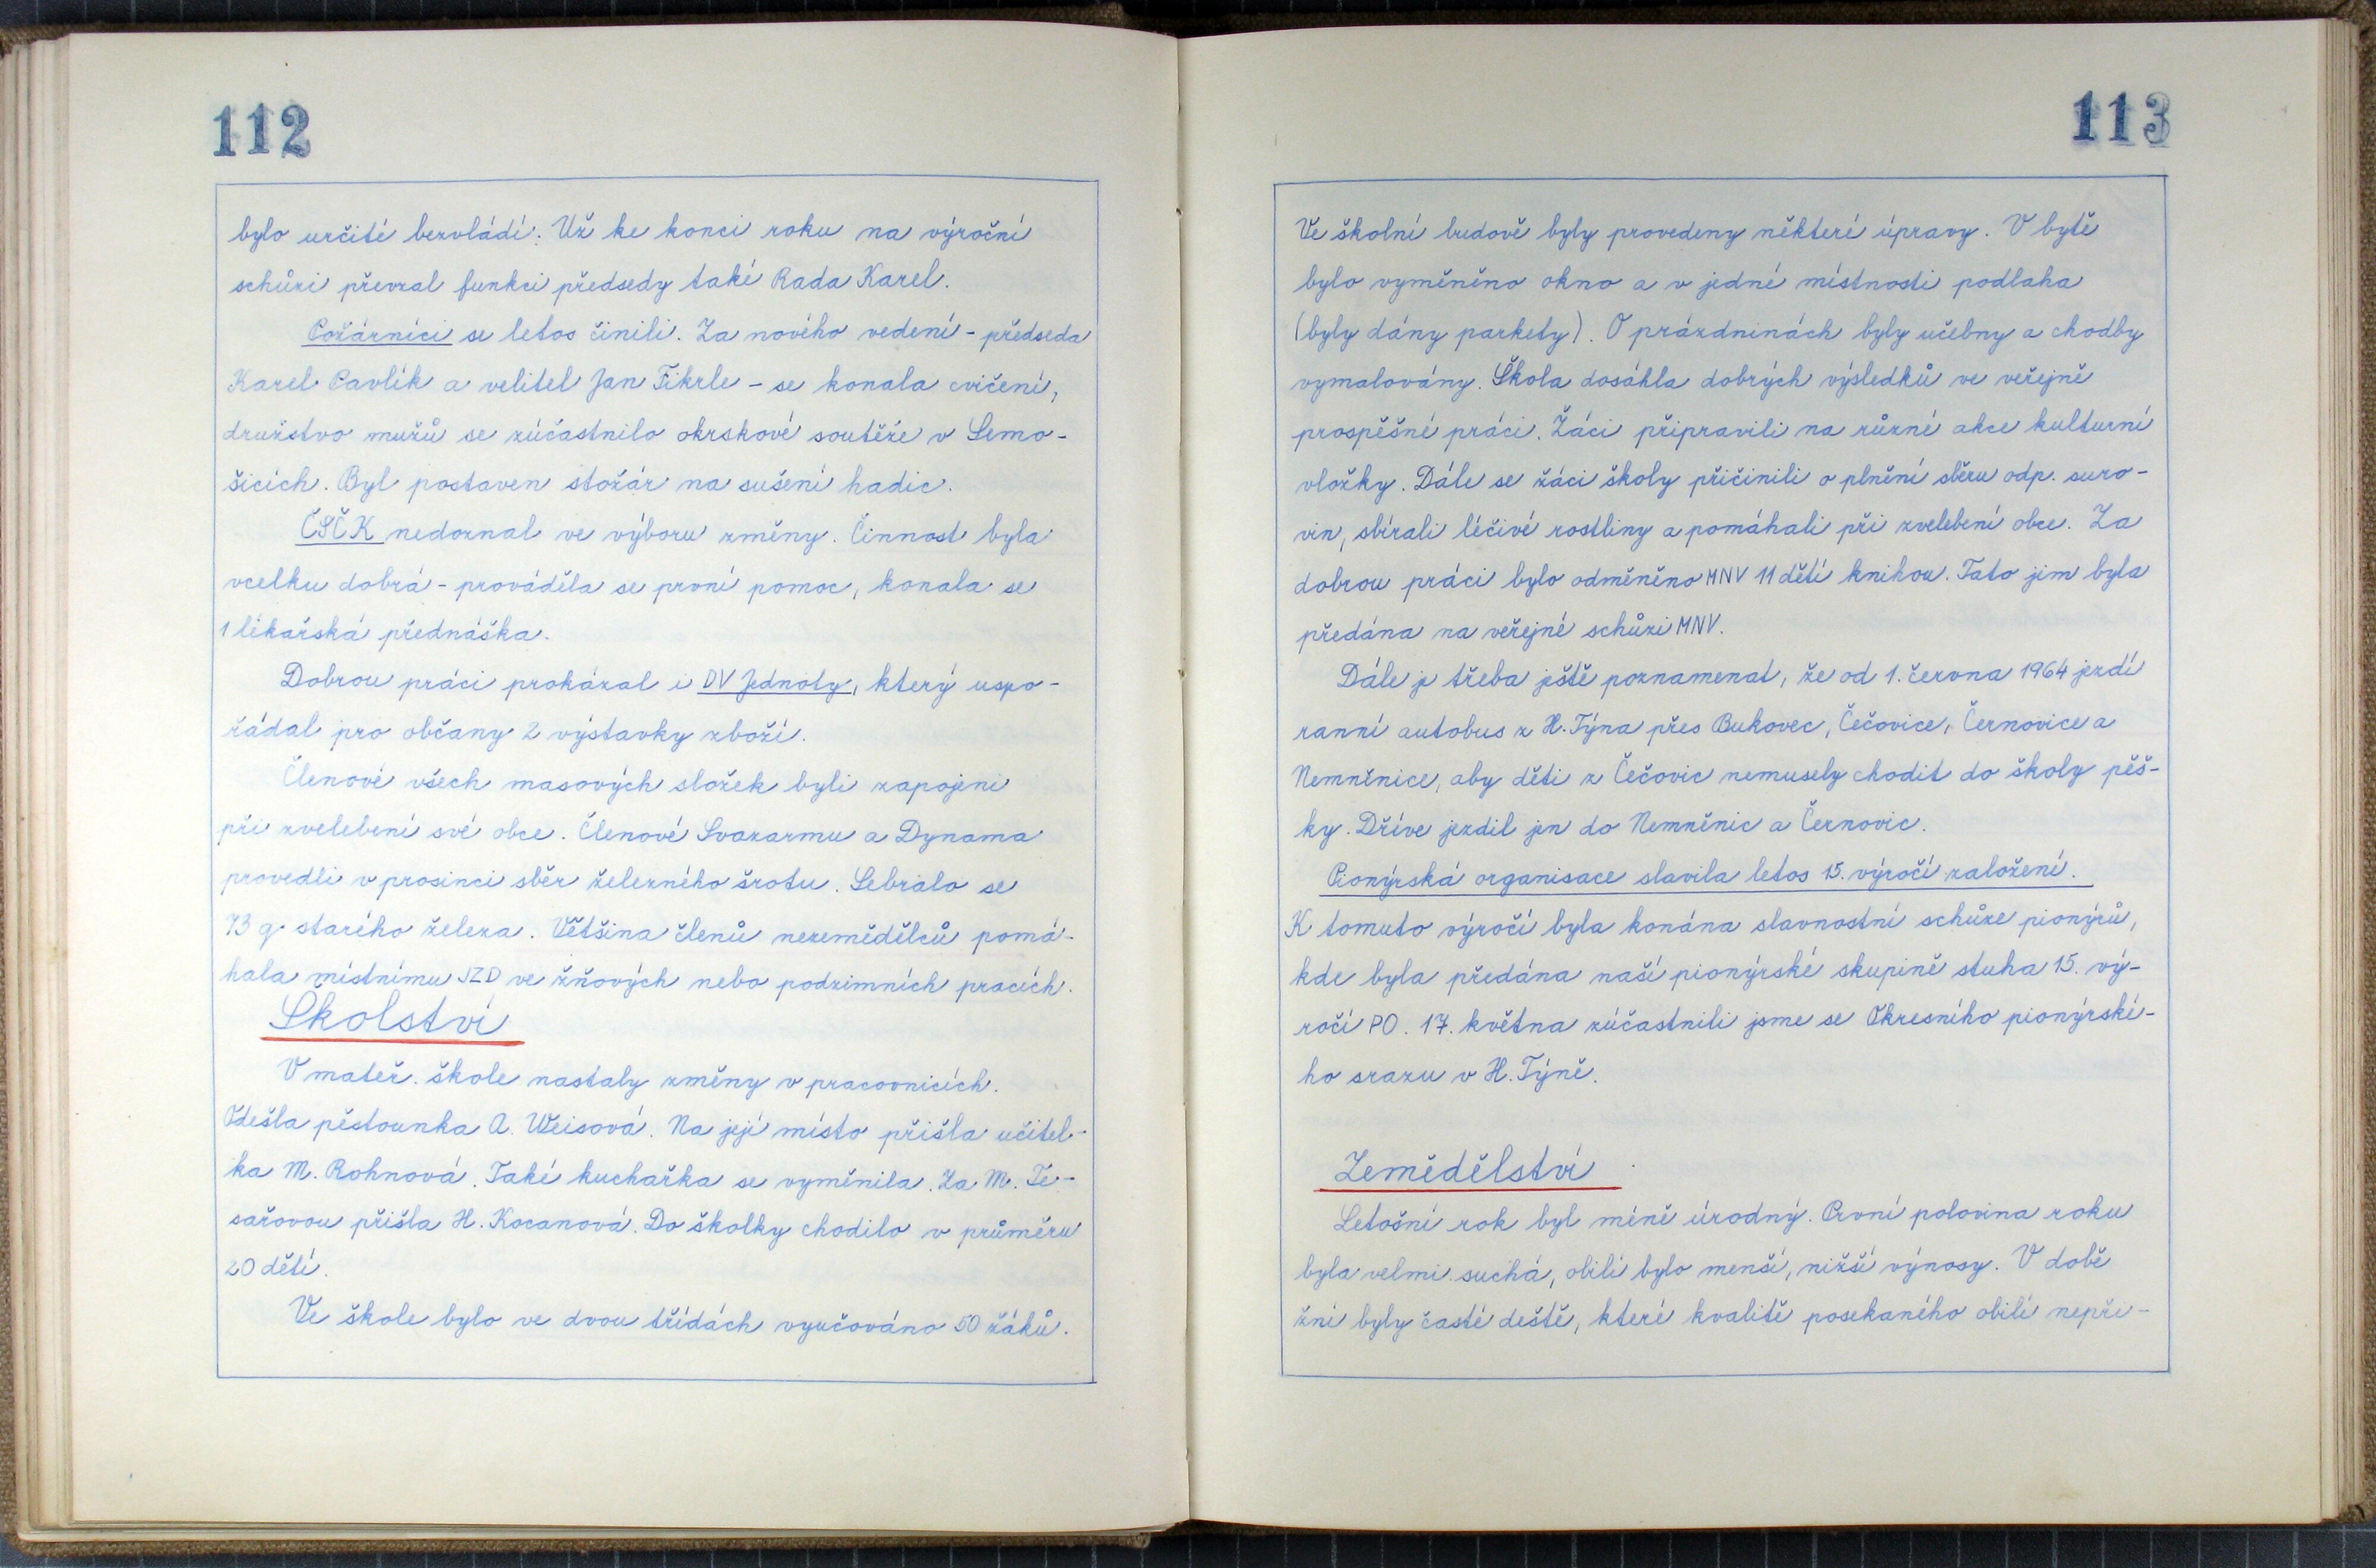 112
bylo určité bezvládí. Už ke konci roku na výroční
schůzi převzal funkci předsedy také Rada Karel.
Požárníci se letos činili. Za nového vedení - předseda
Karel Pavlík a velitel Jan Fikrle - se konala cvičení,
družstvo mužů se zúčastnilo okrskové soutěže v Semo-
šicích. Byl postaven stožár na sušení hadic.
ČSČK nedoznal ve výboru změny. Činnost byla
vcelku dobrá - prováděla se první pomoc, konala se
1 lékařská přednáška.
Dobrou práci prokázal i DV Jednoty, který uspo-
řádal pro občany 2 výstavky zboží.
Členové všech masových složek byli zapojeni
při zvelebení své obce. Členové Svazarmu a Dynama
provedli v prosinci sběr železného šrotu. Sebralo se
73 q starého železa. Většina členů nezemědělců pomá-
hala místnímu JZD ve žňových nebo podzimních pracích.
Školství
V mateř. škole nastaly změny v pracovnicích.
Odešla pěstounka A. Weisová. Na její místo přišla učitel-
ka M. Rohnová. Také kuchařka se vyměnila. Za M. Te-
sařovou přišla H. Kocanová. Do školky chodilo v průměru
20 dětí.
Ve škole bylo ve dvou třídách vyučováno 50 žáků.
113
Ve školní budově byly provedeny některé úpravy. V bytě
bylo vyměněno okno a v jedné místnosti podlaha
(byly dány parkety). O prázdninách byly učebny a chodby
vymalovány. Škola dosáhla dobrých výsledků ve veřejně
prospěšné práci. Žáci připravili na různé akce kulturní
vložky. Dále se žáci školy přičinili o plnění sběru odp. suro-
vin, sbírali léčivé rostliny a pomáhali při zvelebení obce. Za
dobrou práci bylo odměněno MNV 11 dětí knihou. Tato jim byla
předána na veřejné schůzi MNV.
Dále je třeba ještě poznamenat, že od 1. června 1964 jezdí
ranní autobus z H. Týna přes Bukovec, Čečovice, Černovice a
Nemněnice, aby děti z Čečovic nemusely chodit do školy pěš-
ky. Dříve jezdil jen do Nemněnic a Černovic.
Pionýrská organisace slavila letos 15. výročí založení.
K tomuto výročí byla konána slavnostní schůze pionýrů,
kde byla předána naší pionýrské skupině stuha 15. vý-
ročí PO. 17. května zúčastnili jsme se Okresního pionýrské-
ho srazu v H. Týně.
Zemědělství
Letošní rok byl méně úrodný. První polovina roku
byla velmi suchá, obilí bylo menší, nižší výnosy. V době
žní byly časté deště, které kvalitě posekaného obilí nepři-